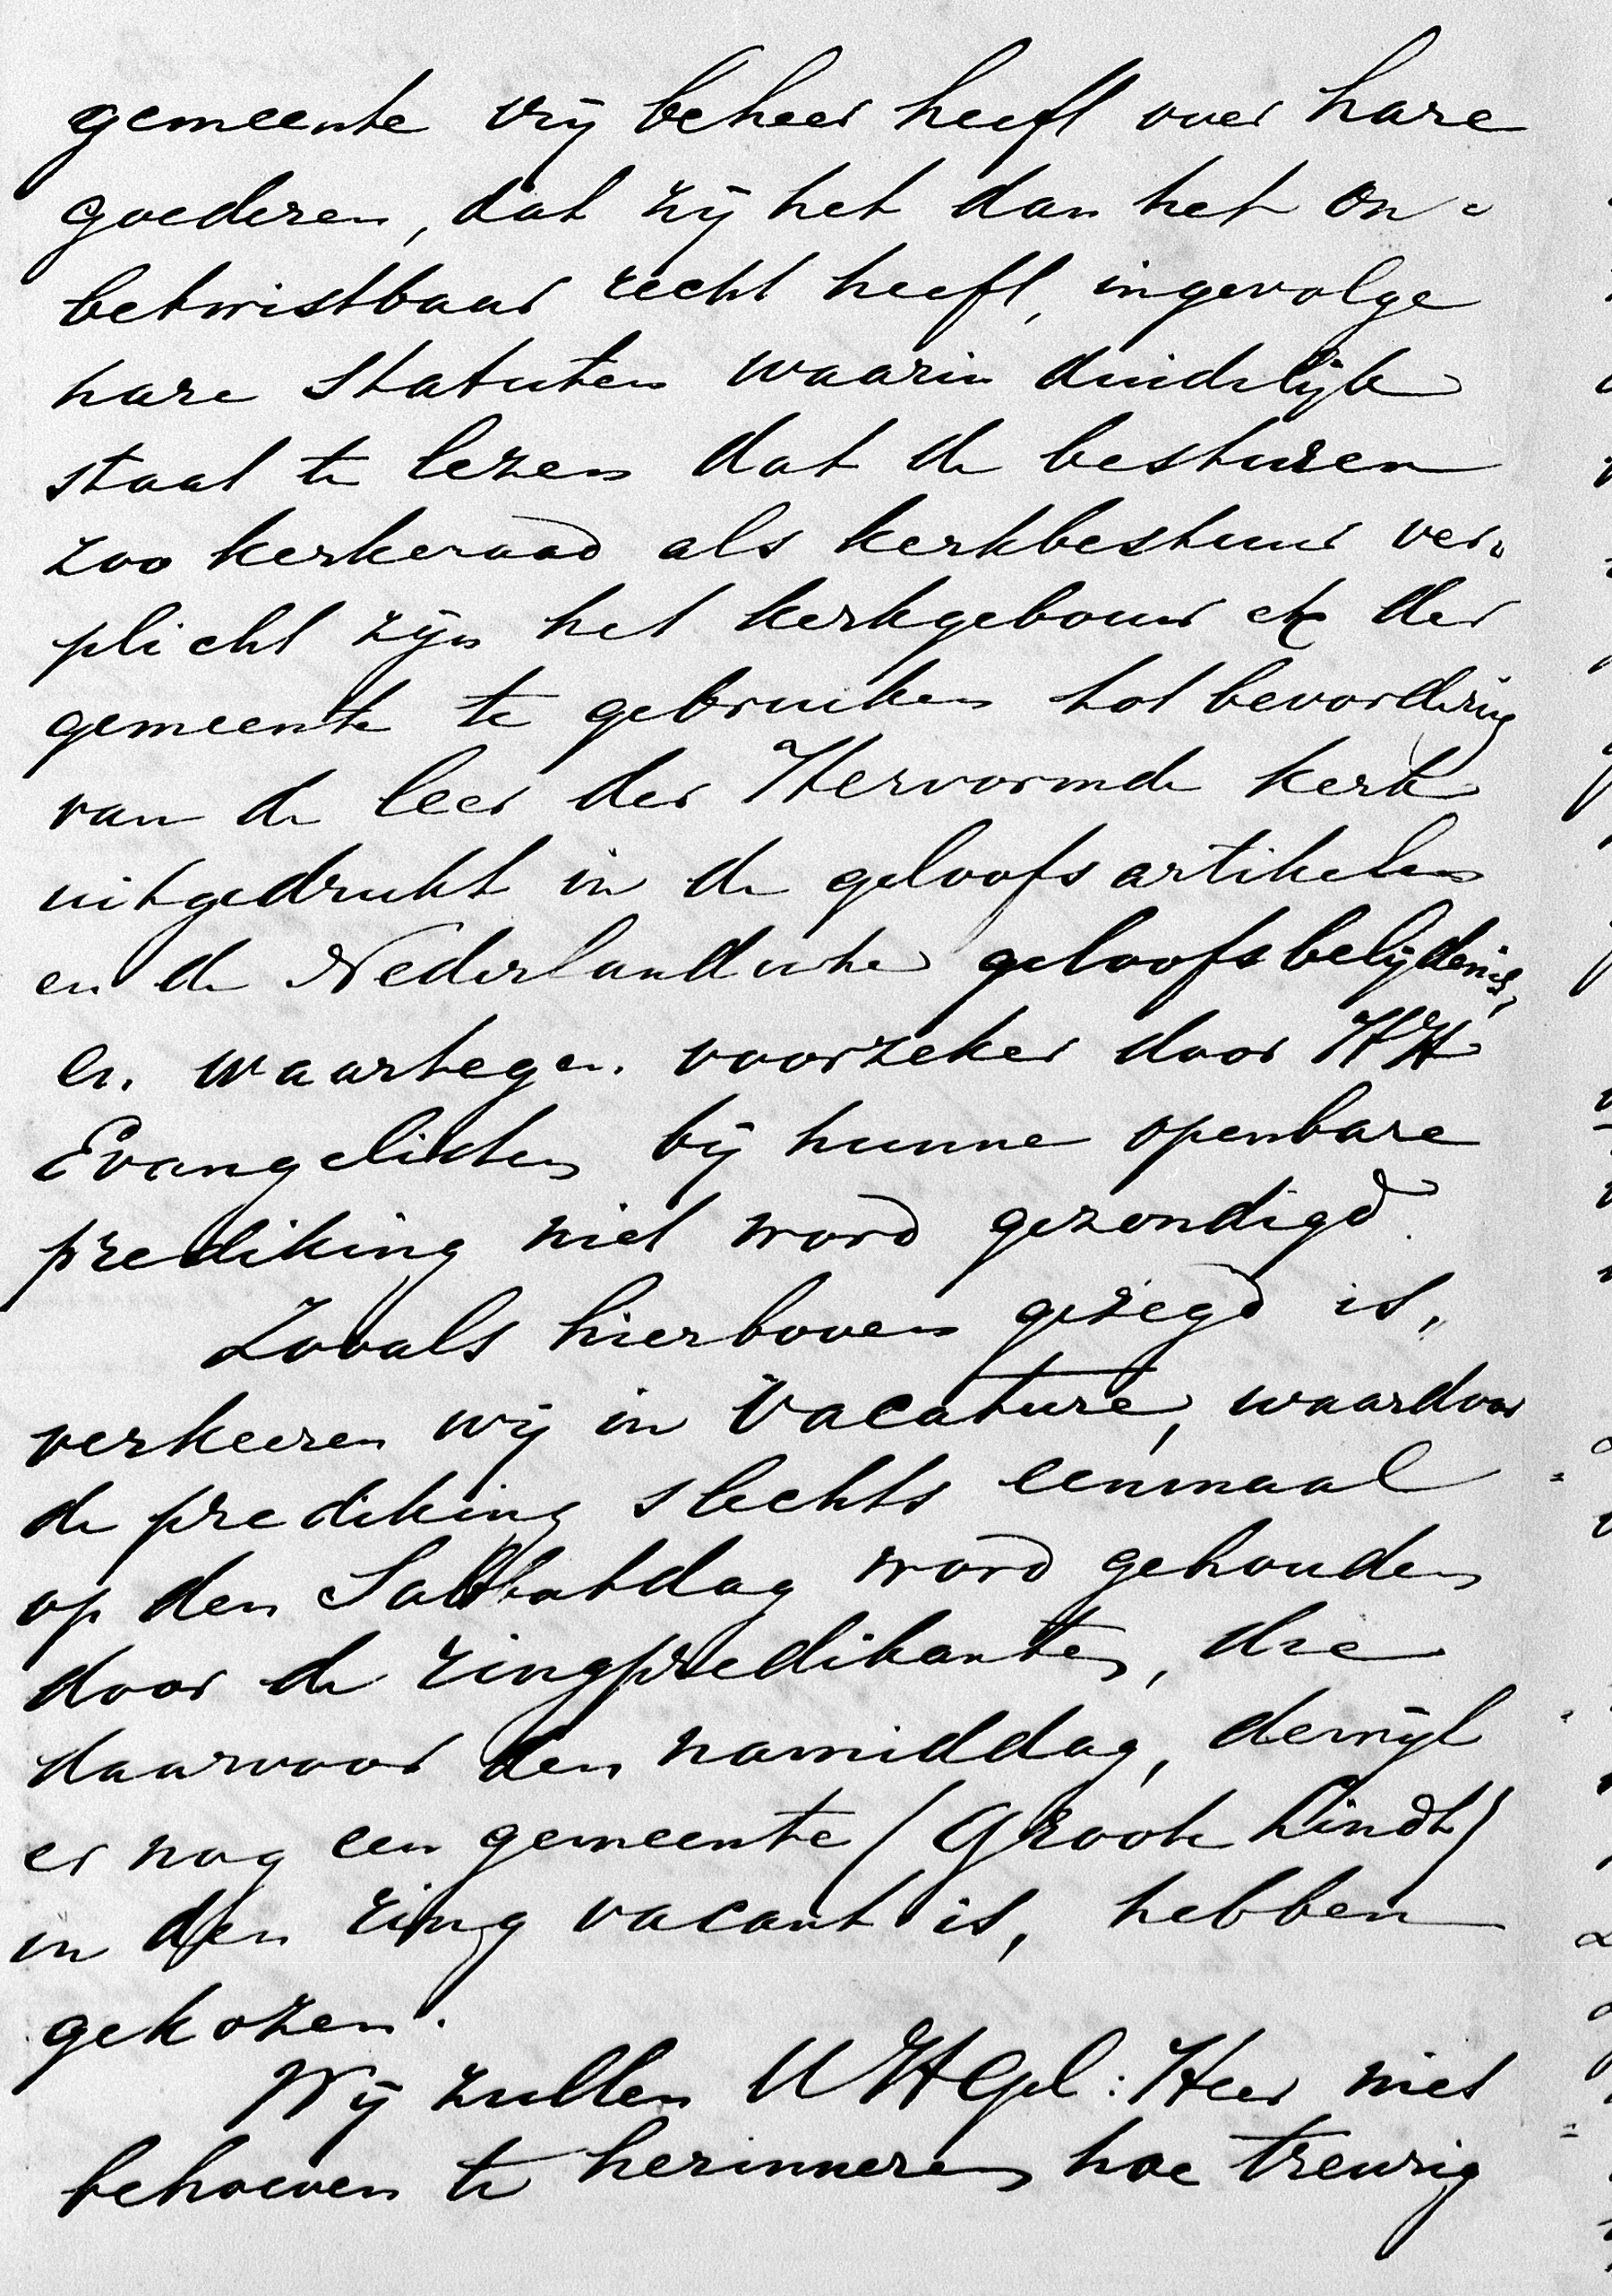 gemeente vrij beheer heeft over hare
goederen, dat zij het dan het on-
betwistbaar recht heeft, ingevolge
hare statuten waarin duidelijk
staat te lezen dat de besturen
zoo kerkeraad als kerkbestuur ver-
plicht zijn het kerkgebouw etc der
gemeente te gebruiken tot bevordering
van de leer der Hervormde kerk
uitgedrukt in de geloofsartikelen
en de Nederlandsche geloofsbelijdenis,
en waartegen voorzeker door HH
Evangelisten bij hunne openbare
prediking niet word gezondigd.
Zooals hierboven gezegd is,
verkeeren wij in vacature, waardoor
de prediking slechts eenmaal
op den Sabbatdag word gehouden
door de ringpredikanten, die
daarvoor den namiddag, dewijl
er nog een gemeente (Groote Lindt)
in den ring vacant is, hebben
gekozen.
Wij zullen UHEgel: Heer niet
behoeven te herinneren hoe treurig